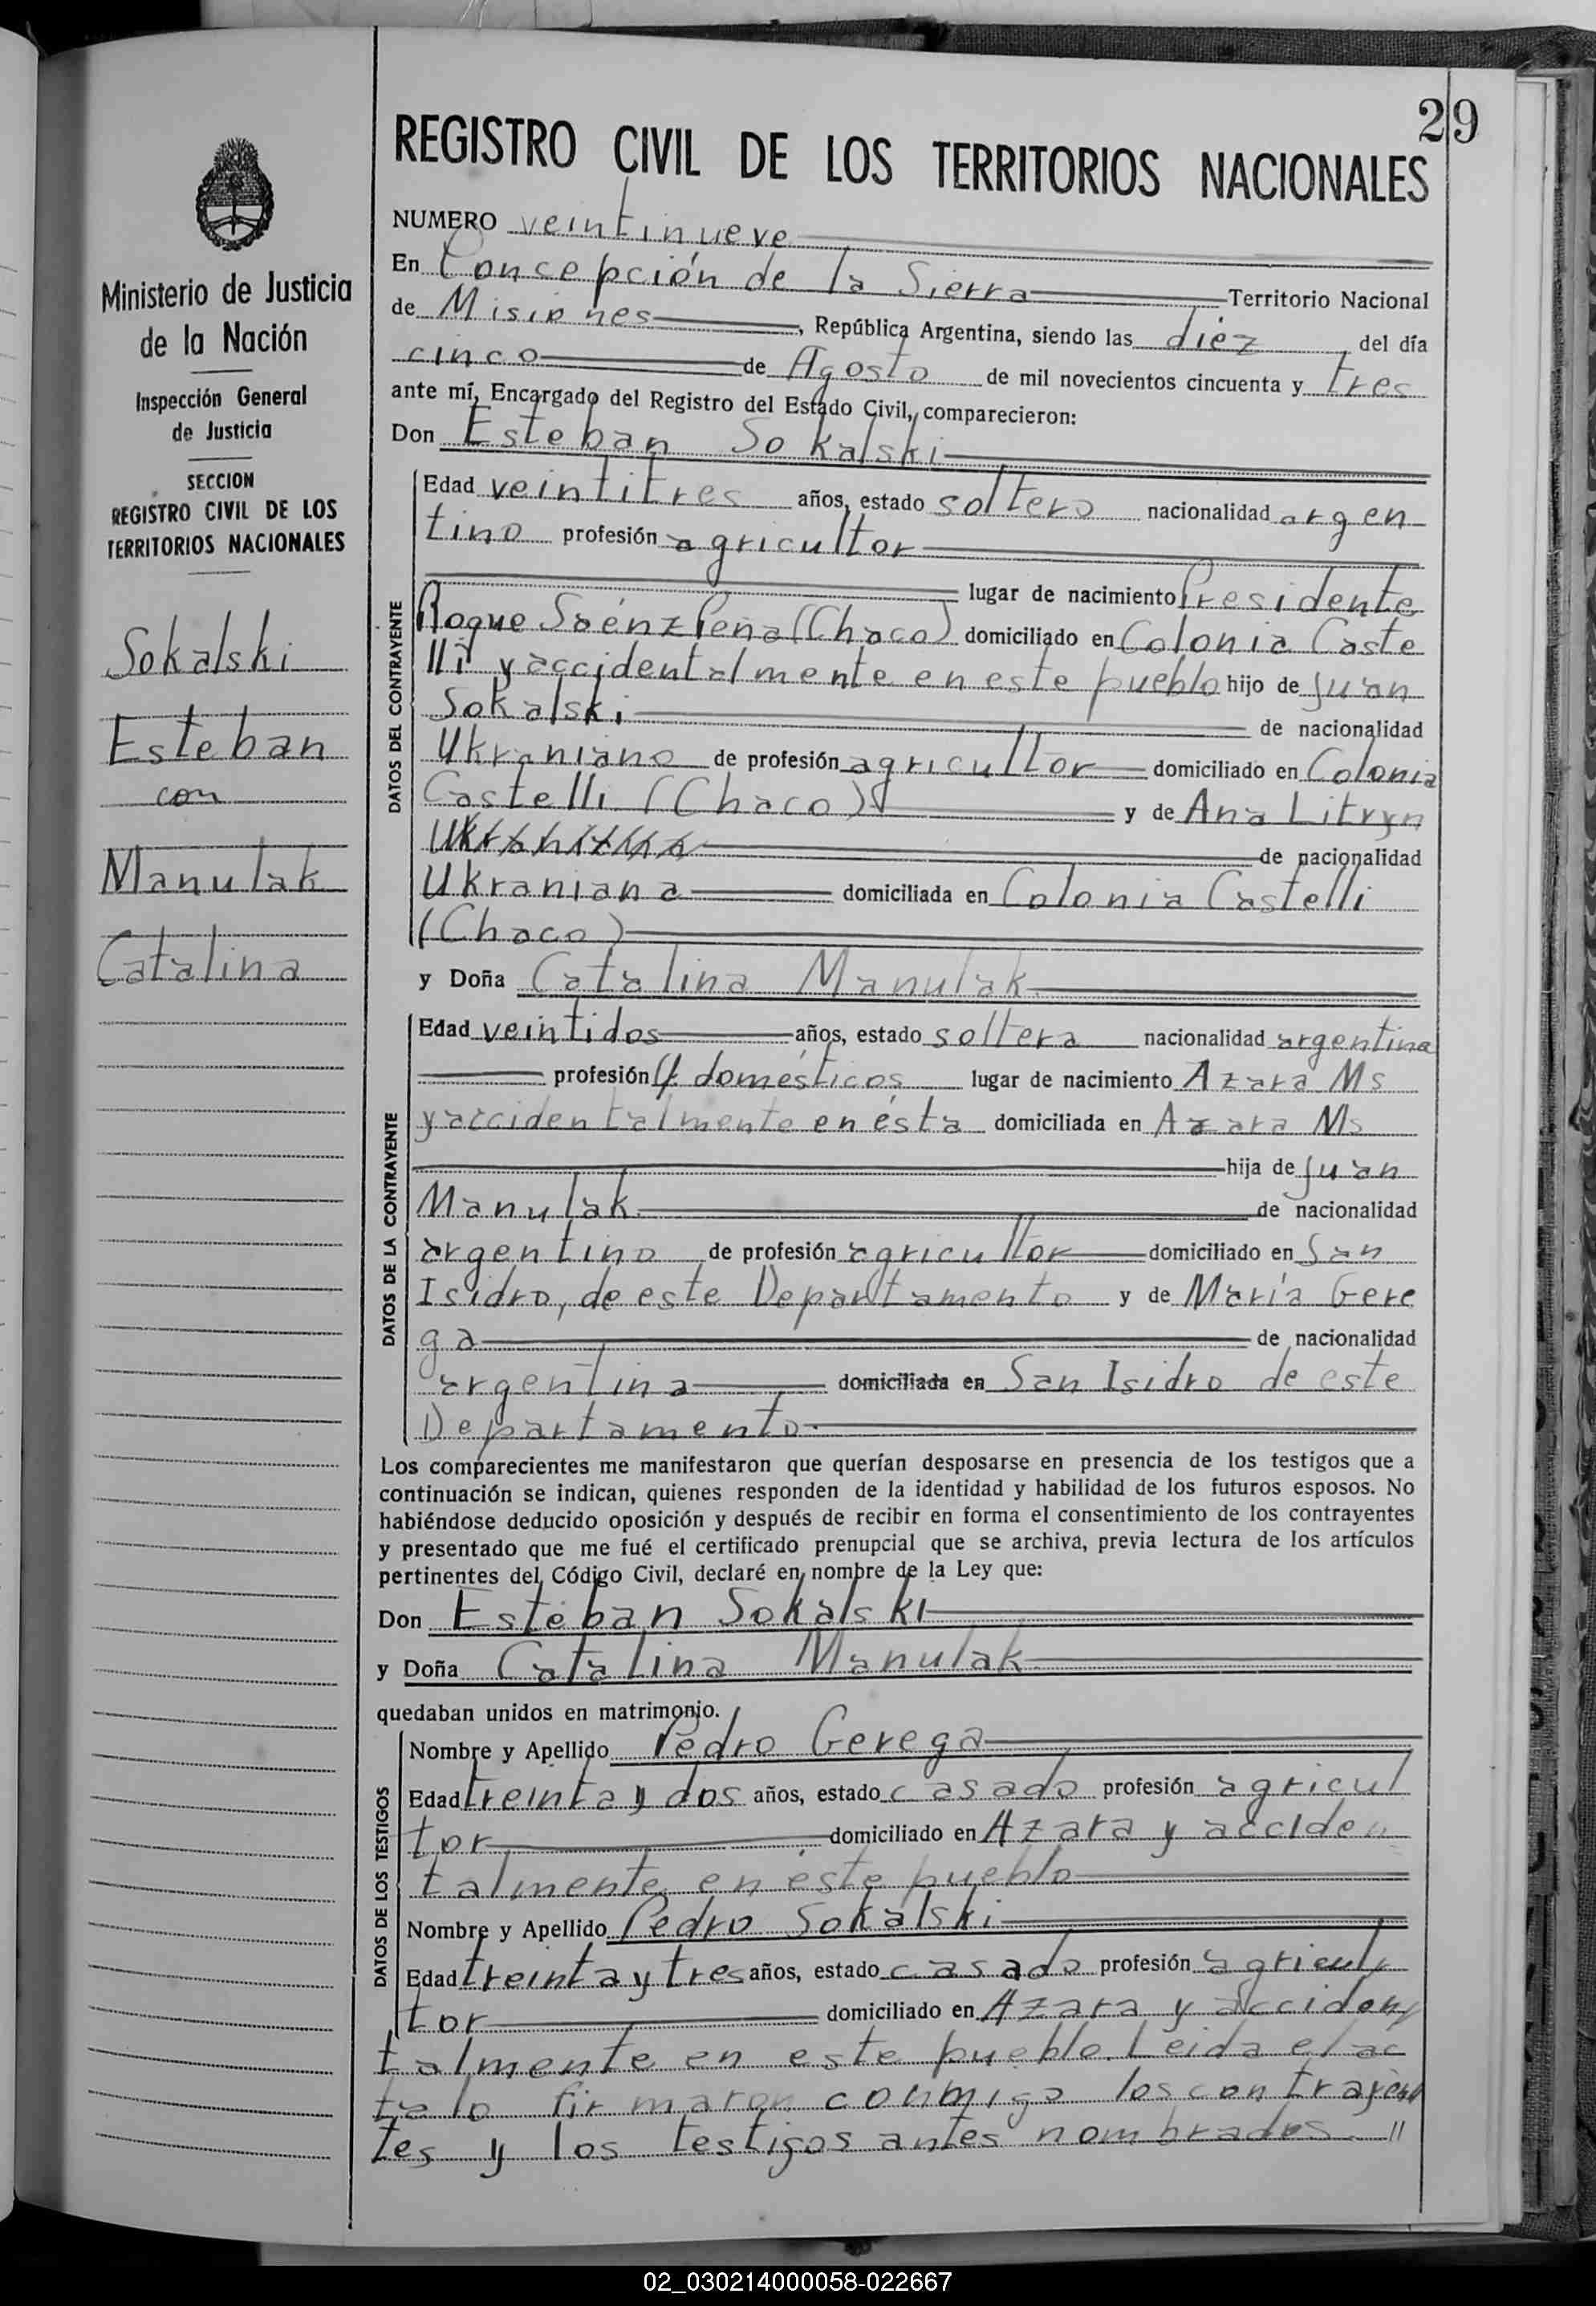 29
REGISTRO CIVIL DE LOS TERRITORIOS NACIONALES
Ministerio de Justicia
de la Nación
Inspección General
de Justicia
SECCION
REGISTRO CIVIL DE LOS
TERRITORIOS NACIONALES
Sokalski
Esteban
con
Manulak
Catalina
NUMERO veintinueve
En Concepción de la Sierra Territorio Nacional
de Misiones, República Argentina, siendo las diez del día
cinco de Agosto de mil novecientos cincuenta y tres
ante mí, Encargado del Registro del Estado Civil, comparecieron:
Don Esteban Sokalski
DATOS DEL CONTRAYENTE
Edad veintitres años, estado soltero nacionalidad argen
tino profesión agricultor
lugar de nacimiento Presidente
Roque Saénz Peña (Chaco) domiciliado en Colonia Caste
lli y accidentalmente en este pueblo hijo de Juan
Sokalski de nacionalidad
Ukraniano de profesión agricultor domiciliado en Colonia
Castelli (Chaco) y de Ana Litvyn
de nacionalidad
Ukraniana domiciliada en Colonia Castelli
(Chaco)
y Doña Catalina Manulak
DATOS DE LA CONTRAYENTE
Edad veintidos años, estado soltera nacionalidad argentina
profesión q. domésticos lugar de nacimiento Azara Ms
y accidentalmente en ésta domiciliada en Azara Ms
hija de Juan
Manulak de nacionalidad
argentino de profesión agricultor domiciliado en San
Isidro, de este Departamento y de María Gere
ga de nacionalidad
argentina domiciliada en San Isidro de este
Departamento.
Los comparecientes me manifestaron que querían desposarse en presencia de los testigos que a
continuación se indican, quienes responden de la identidad y habilidad de los futuros esposos. No
habiéndose deducido oposición y después de recibir en forma el consentimiento de los contrayentes
y presentado que me fué el certificado prenupcial que se archiva, previa lectura de los artículos
pertinentes del Código Civil, declaré en nombre de la Ley que:
Don Esteban Sokalski
y Doña Catalina Manulak
quedaban unidos en matrimonio.
DATOS DE LOS TESTIGOS
Nombre y Apellido Pedro Gerega
Edad treinta y dos años, estado casado profesión agricul
tor domiciliado en Azara y acciden
talmente en este pueblo
Nombre y Apellido Pedro Sokalski
Edad treinta y tres años, estado casado profesión agricul
tor domiciliado en Azara y acciden
talmente en este pueblo. Leida el ac
ta lo firmaron conmigo los contrayen
tes y los testigos antes nombrados. //
02_030214000058-022667